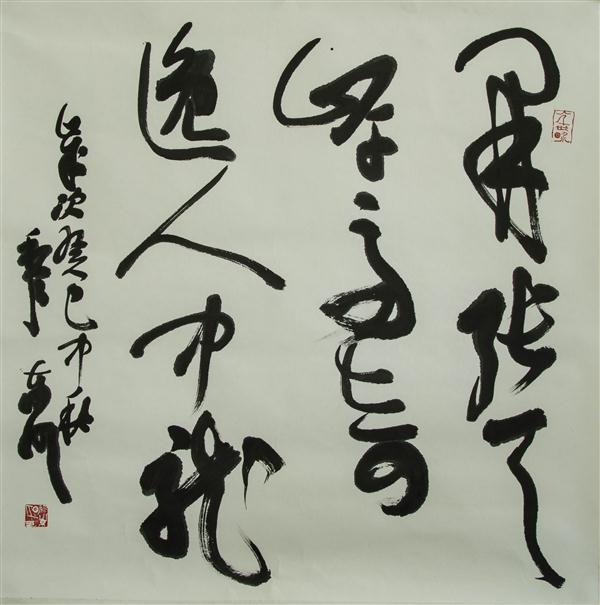 開張天
岸馬奇
逸人中龍
歲次癸巳中秋